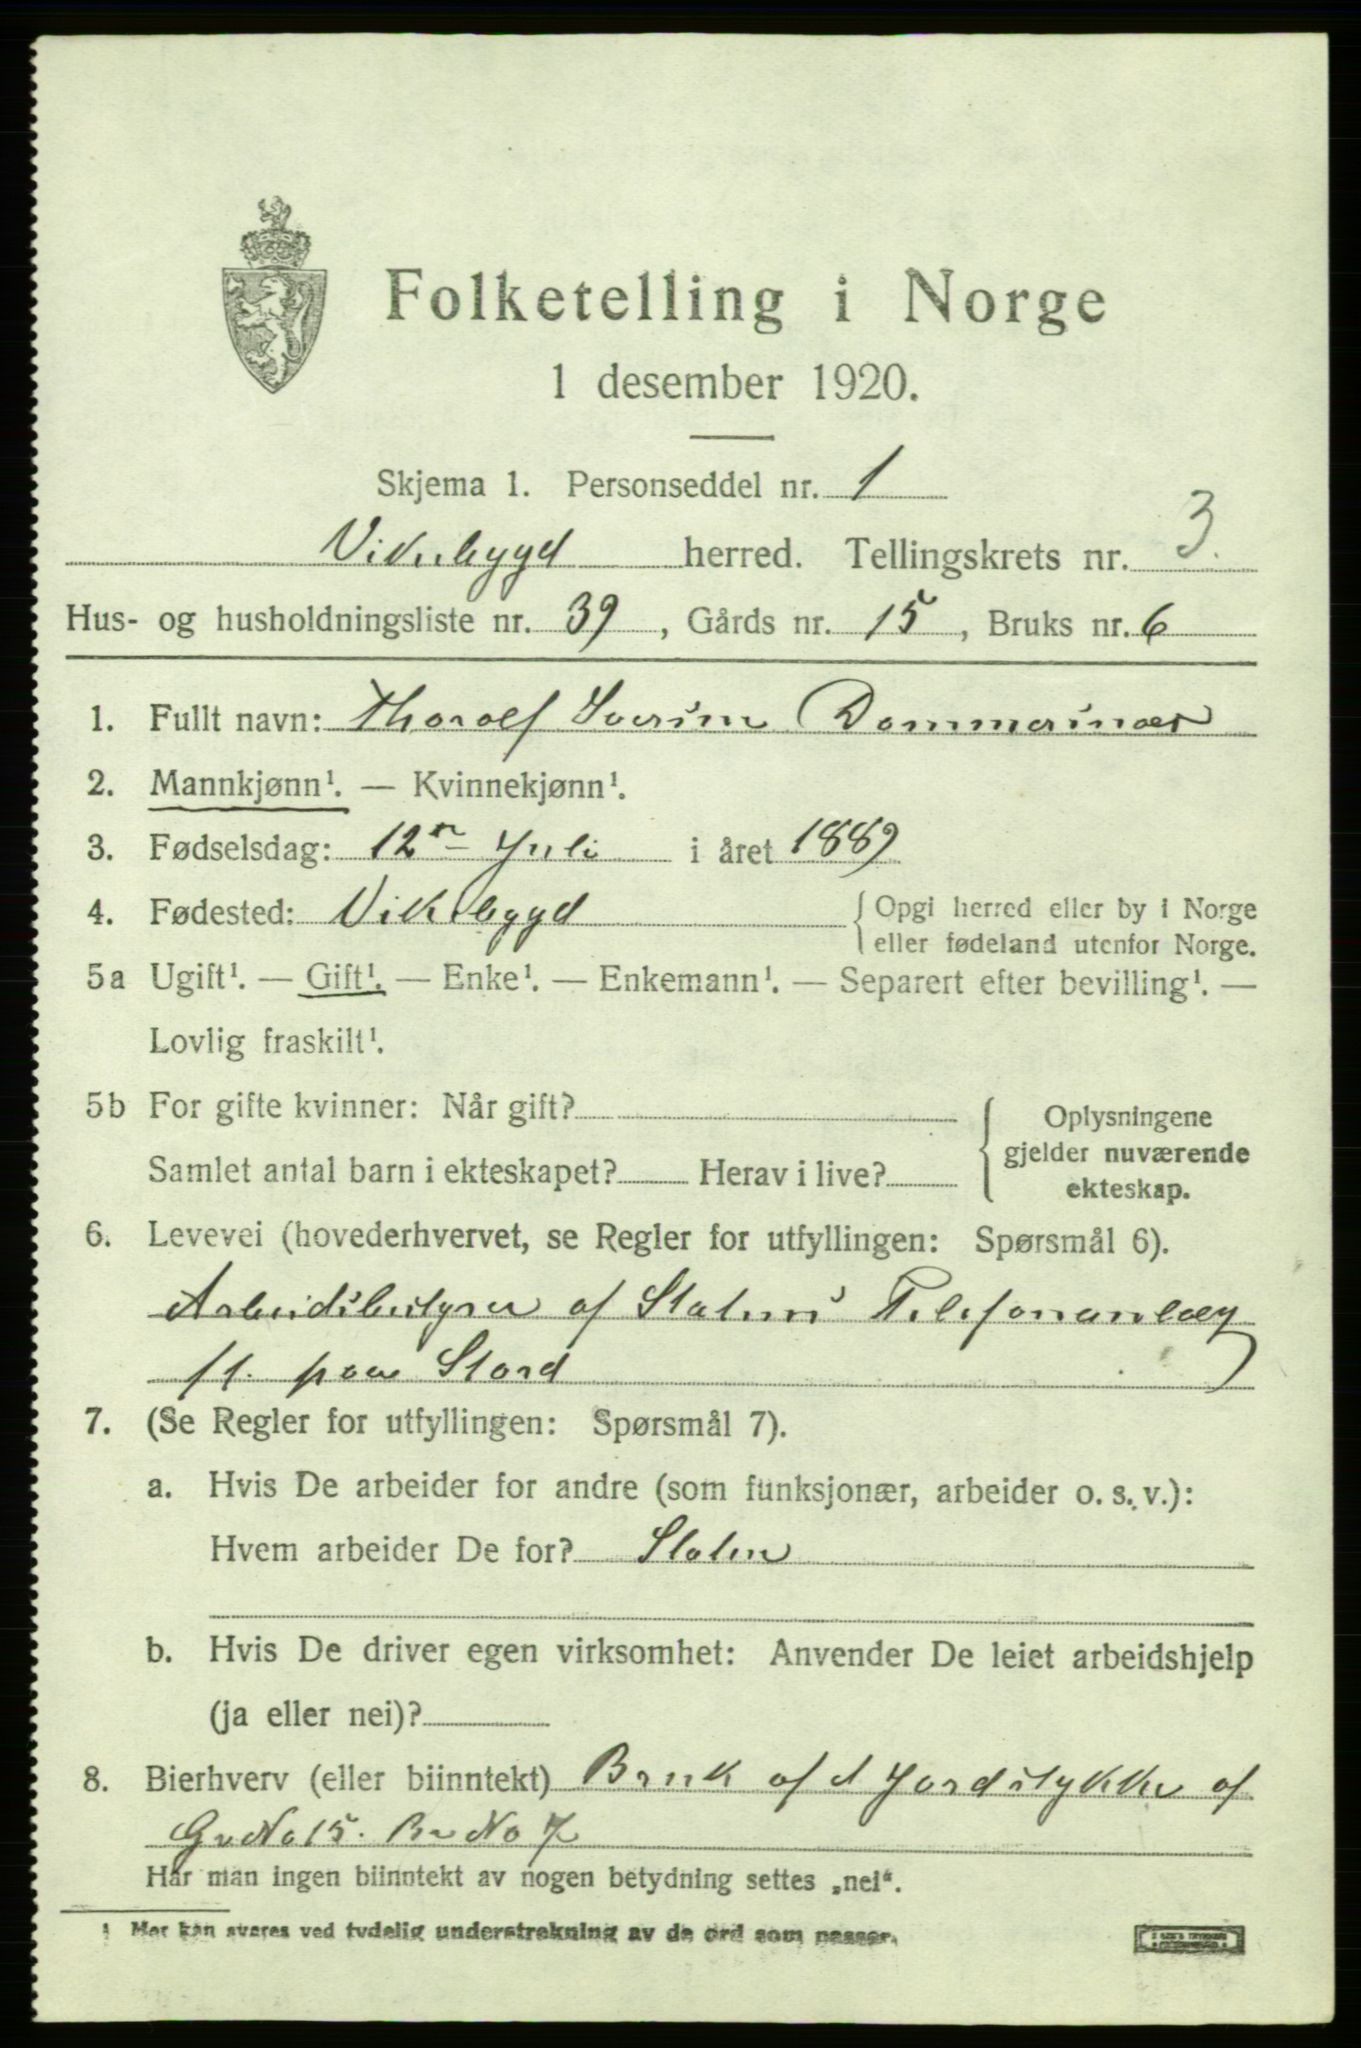 Folketelling i Norge
1 desember 1920.
Skjema 1. Personseddel nr. 1
Vikebygd herred. Tellingskrets nr. 3.
Hus- og husholdningsliste nr. 39, Gårds nr. 15, Bruks nr. 6
1. Fullt navn: Thorolf Severin Dommersnæs
2. Mannkjønn¹. — Kvinnekjønn¹.
3. Fødselsdag: 12te Juli i året 1889
4. Fødested: Vikebygd { Opgi herred eller by i Norge
eller fødeland utenfor Norge.
5a Ugift¹. — Gift¹. — Enke¹. — Enkemann¹. — Separert efter bevilling¹. —
Lovlig fraskilt¹.
5b For gifte kvinner: Når gift?
Samlet antal barn i ekteskapet? Herav i live?
{ Oplysningene
gjelder nuværende
ekteskap.
6. Levevei (hovederhvervet, se Regler for utfyllingen: Spørsmål 6).
Arbeidsbestyrer af Statens Telefonanlæg
ft. paa Stord
7. (Se Regler for utfyllingen: Spørsmål 7).
a. Hvis De arbeider for andre (som funksjonær, arbeider o. s. v.):
Hvem arbeider De for? Staten
b. Hvis De driver egen virksomhet: Anvender De leiet arbeidshjelp
(ja eller nei)?
8. Bierhverv (eller biinntekt) Bruk af et Jordstykke af
G. No 15. Br No 7
Har man ingen biinntekt av nogen betydning settes „nei“.
¹ Her kan svares ved tydelig understrekning av de ord som passer.